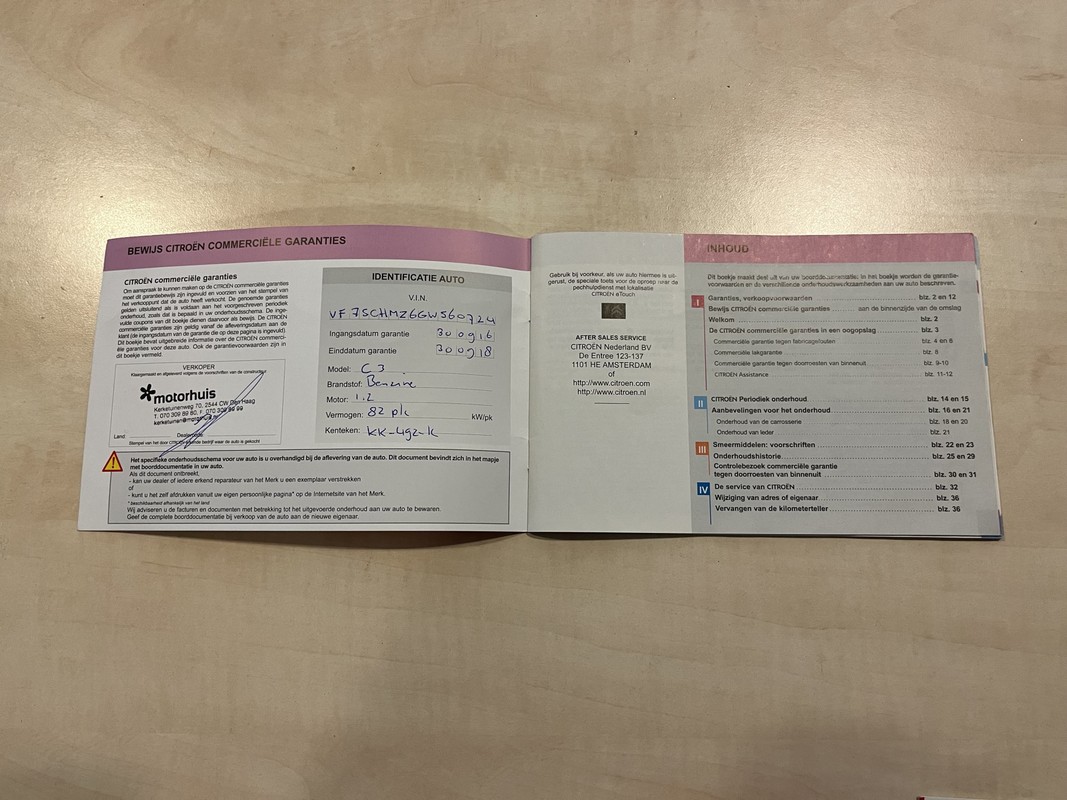 BEWIJS CITROËN COMMERCIËLE GARANTIES
CITROËN commerciële garanties
Om aanspraak te kunnen maken op de CITROËN commerciële garanties
moet dit garantiebewijs zijn ingevuld en voorzien van het stempel van
het verkooppunt dat de auto heeft verkocht. De genoemde garanties
gelden uitsluitend als is voldaan aan het voorgeschreven periodiek
onderhoud, zoals dat is bepaald in uw onderhoudsschema. De inge-
vulde coupons van dit boekje dienen daarvoor als bewijs. De CITROËN
commerciële garanties zijn geldig vanaf de afleveringsdatum aan de
klant (de ingangsdatum van de garantie die op deze pagina is ingevuld).
Dit boekje bevat uitgebreide informatie over de CITROËN commerci-
ële garanties voor deze auto. Ook de garantievoorwaarden zijn in
dit boekje vermeld.
VERKOPER
Klaargemaakt en afgeleverd volgens de voorschriften van de constructeur
motorhuis
Kerketuinenweg 70, 2544 CW Den Haag
T. 070 309 89 80, F. 070 309 89 99
Land
Dealercode
Stempel van het door CITROËN erkende bedrijf waar de auto is gekocht
IDENTIFICATIE AUTO
V.I.N.
VF7SCHMZ6GW560724
Ingangsdatum garantie 300916
Einddatum garantie 300918
Model: C3
Brandstof: Benzine
Motor: 1.2
Vermogen: 82 pk kW/pk
Kenteken: KK-492-K
Het specifieke onderhoudsschema voor uw auto is u overhandigd bij de aflevering van de auto. Dit document bevindt zich in het mapje
met boorddocumentatie in uw auto.
Als dit document ontbreekt,
- kan uw dealer of iedere erkend reparateur van het Merk u een exemplaar verstrekken
of
- kunt u het zelf afdrukken vanuit uw eigen persoonlijke pagina* op de Internetsite van het Merk.
* beschikbaarheid afhankelijk van het land
Wij adviseren u de facturen en documenten met betrekking tot het uitgevoerde onderhoud aan uw auto te bewaren.
Geef de complete boorddocumentatie bij verkoop van de auto aan de nieuwe eigenaar.
Gebruik bij voorkeur, als uw auto hiermee is uit-
gerust, de speciale toets voor de oproep naar de
pechhulpdienst met lokalisatie
CITROËN eTouch
AFTER SALES SERVICE
CITROËN Nederland BV
De Entree 123-137
1101 HE AMSTERDAM
of
http://www.citroen.com
http://www.citroen.nl
INHOUD
Dit boekje maakt deel uit van uw boorddocumentatie. In het boekje worden de garantie-
voorwaarden en de verschillende onderhoudswerkzaamheden aan uw auto beschreven.
I Garanties, verkoopvoorwaarden blz. 2 en 12
Bewijs CITROËN commerciële garanties aan de binnenzijde van de omslag
Welkom blz. 2
De CITROËN commerciële garanties in een oogopslag blz. 3
Commerciële garantie tegen fabricagefouten blz. 4 en 8
Commerciële lakgarantie blz. 8
Commerciële garantie tegen doorroesten van binnenuit blz. 9-10
CITROËN Assistance blz. 11-12
II CITROËN Periodiek onderhoud blz. 14 en 15
Aanbevelingen voor het onderhoud blz. 16 en 21
Onderhoud van de carrosserie blz. 18 en 20
Onderhoud van leder blz. 21
III Smeermiddelen: voorschriften blz. 22 en 23
Onderhoudshistorie blz. 25 en 29
Controlebezoek commerciële garantie
tegen doorroesten van binnenuit blz. 30 en 31
IV De service van CITROËN blz. 32
Wijziging van adres of eigenaar blz. 36
Vervangen van de kilometerteller blz. 36